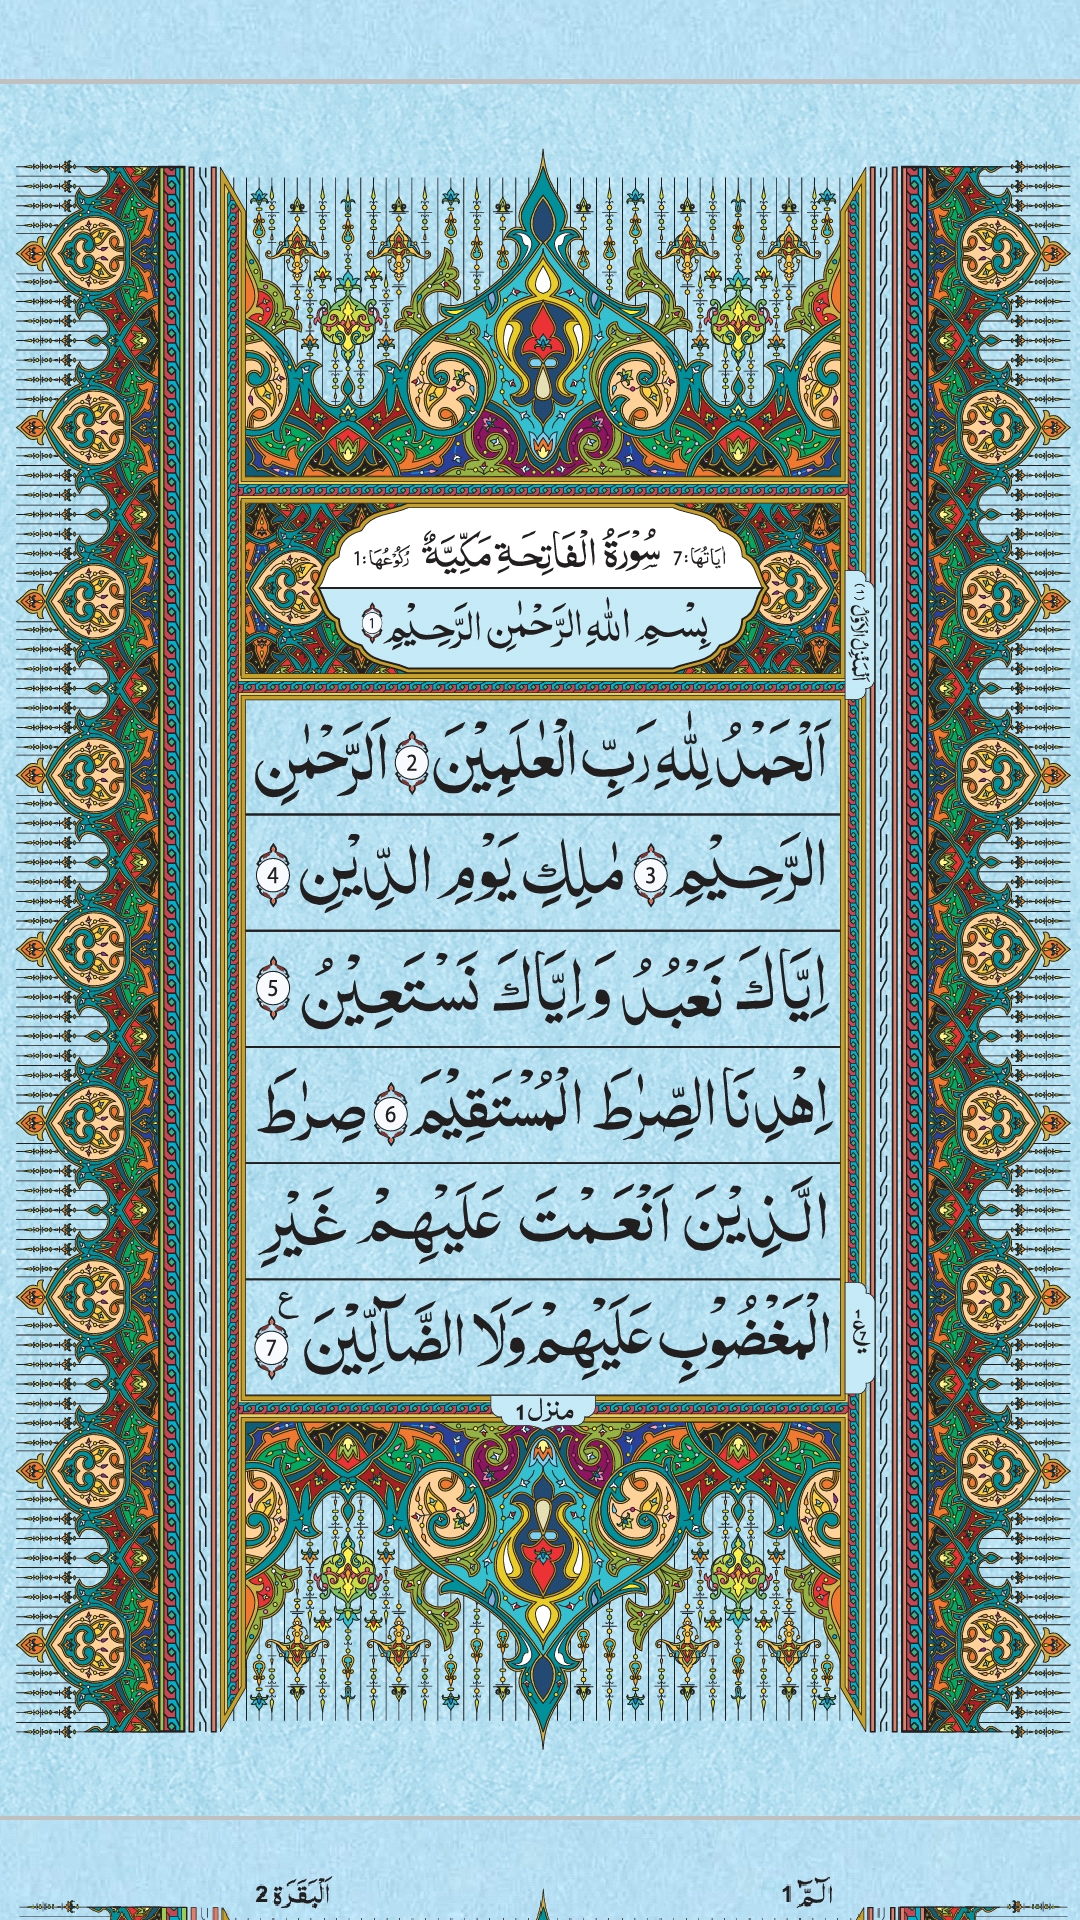 اٰيَاتُهَا:7 سُوْرَةُ الْفَاتِحَةِ مَكِّيَّةٌ رُكُوْعُهَا:1
بِسْمِ اللهِ الرَّحْمٰنِ الرَّحِيْمِ 1
اَلْمَنْزِلُ الْاَوَّلُ (1)
اَلْحَمْدُ لِلّٰهِ رَبِّ الْعٰلَمِيْنَ 2 اَلرَّحْمٰنِ
الرَّحِيْمِ 3 مٰلِكِ يَوْمِ الدِّيْنِ 4
اِيَّاكَ نَعْبُدُ وَاِيَّاكَ نَسْتَعِيْنُ 5
اِهْدِنَا الصِّرٰطَ الْمُسْتَقِيْمَ 6 صِرٰطَ
الَّذِيْنَ اَنْعَمْتَ عَلَيْهِمْ غَيْرِ
الْمَغْضُوْبِ عَلَيْهِمْ وَلَا الضَّآلِّيْنَ 7 ع
منزل 1
الٓمّٓ 1 اَلْبَقَرَة 2